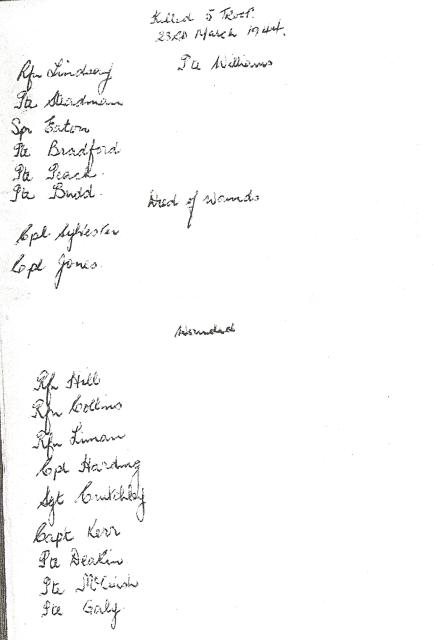 Killed 5 Troop.
23RD March 1944.
Rfn Lindsay Pte Williams
Pte Steadman
Spr Eaton
Pte Bradford
Pte Peach
Pte Budd
Died of Wounds
Cpl Sylvester
Cpl Jones.
Wounded
Rfn Hill
Rfn Collins
Rfn Liman
Cpl Harding
Sgt Crutchley
Capt Kerr
Pte Deakin
Pte
Pte Galy